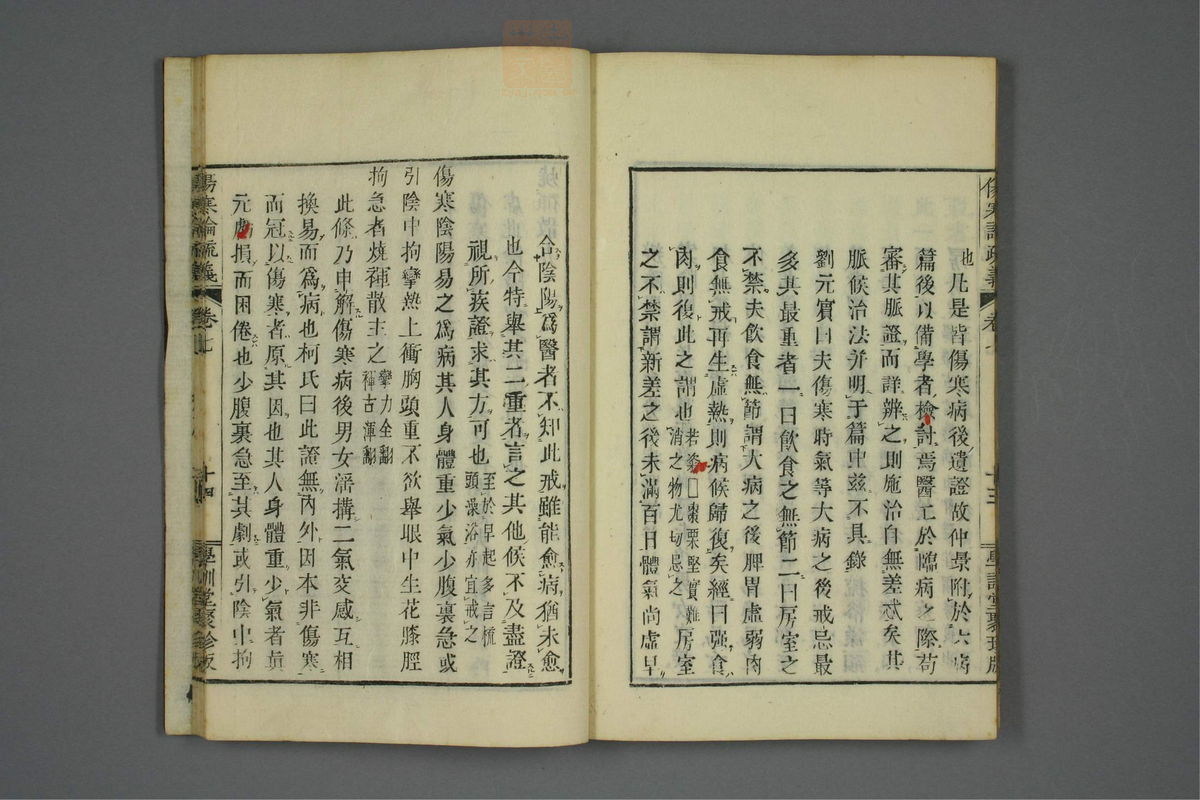 也凡是皆傷寒病後遺證故仲景附於六病
篇後以備學者檢討焉醫工於臨病之際苟
審其脈證而詳辨之則施治自無差忒矣其
脈候治法并明于篇中玆不具錄
劉元賓曰夫傷寒時氣等大病之後戒忌最
多其最重者一曰飲食之無節二曰房室之
不禁夫飲食無節謂大病之後脾胃虛弱肉
食無戒再生虛熱則病候歸復矣經曰强食
肉則復此之謂也若姿□棗栗堅實難消之物尤切忌之房室
之不禁謂新差之後未滿百日體氣尚虛早
合陰陽爲醫者不知此戒雖能愈病猶未愈
也今特舉其二重者言之其他候不及盡證
視所疾證求其方可也至於早起多言梳頭澡浴亦宜戒之
傷寒陰陽易之爲病其人身體重少氣少腹裏急或
引陰中拘攣熱上衝胸頭重不欲舉眼中生花膝脛
拘急者燒褌散主之攣力全翻褌古渾翻
此條乃申解傷寒病後男女滛搆二氣交感互相
換易而爲病也柯氏曰此證無內外因本非傷寒
而冠以傷寒者原其因也其人身體重少氣者眞
元虧損而困倦也少腹裏急至其劇或引陰中拘
傷寒論疏義
卷七
十四
學訓堂聚珍版